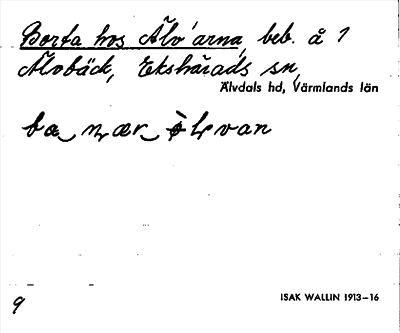 Borta hos Älv'arna, beb. å 1
Älvbäck, Ekshärads sn,
Älvdals hd, Värmlands län
ba n ær ò l van
9
ISAK WALLIN 1913–16